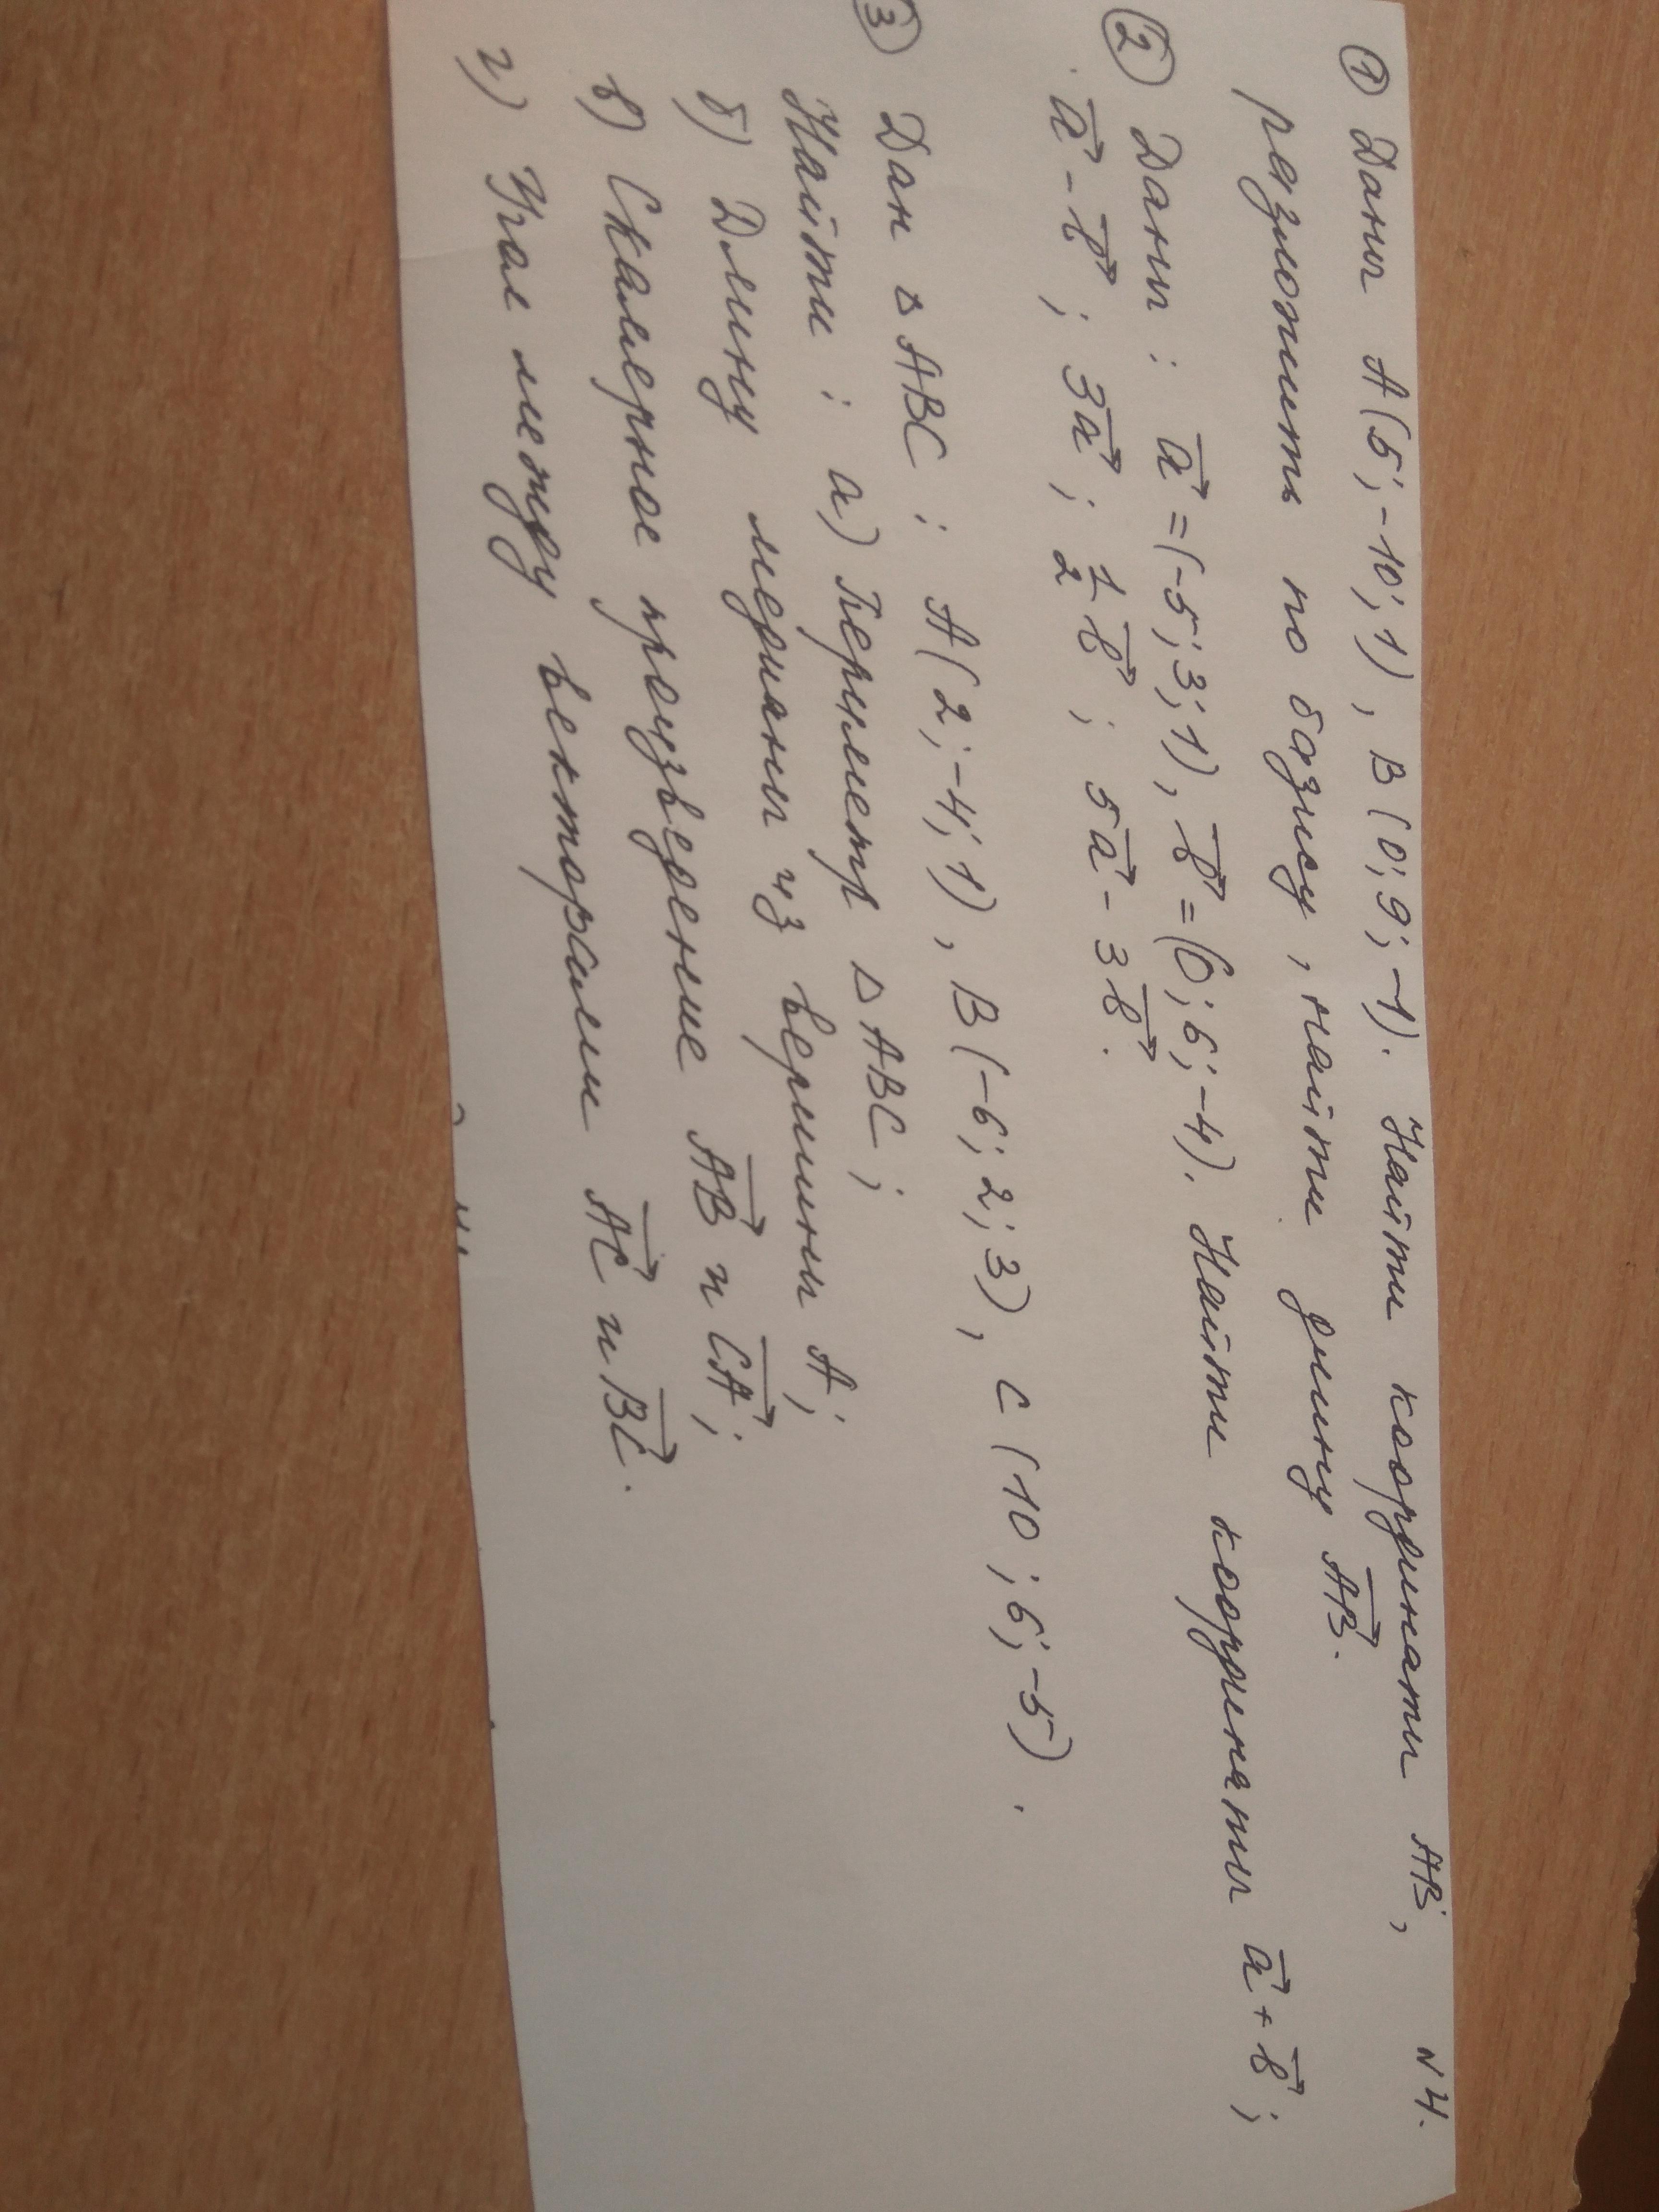 N4.
① Даны A(5;-10;1), B(0;9;-1). Найти координаты AB,
разложить по базису, найти длину AB.
② Даны: a=(-5;3;1), b=(0;6;-4). Найти координаты a+b;
a-b; 3a; 1/2 b; 5a-3b.
③ Дан △ABC: A(2;-4;1), B(-6;2;3), C(10;6;-5).
Найти: а) Периметр △ABC;
б) Длину медианы из вершины A;
в) Скалярное произведение AB и CA;
г) Угол между векторами AC и BC.